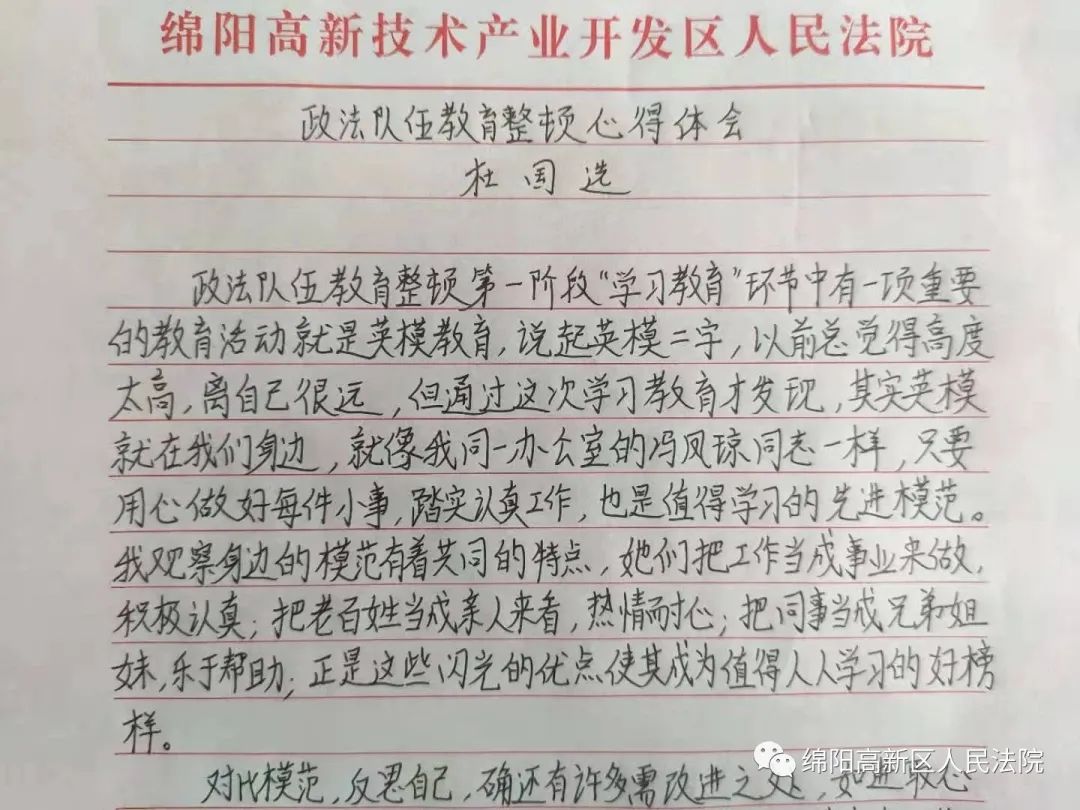 绵阳高新技术产业开发区人民法院
政法队伍教育整顿心得体会
杜国选
政法队伍教育整顿第一阶段“学习教育”环节中有一项重要
的教育活动就是英模教育，说起英模二字，以前总觉得高度
太高，离自己很远，但通过这次学习教育才发现，其实英模
就在我们身边，就像我同一办公室的冯凤琼同志一样，只要
用心做好每件小事，踏实认真工作，也是值得学习的先进模范。
我观察身边的模范有着共同的特点，她们把工作当成事业来做，
积极认真；把老百姓当成亲人来看，热情耐心；把同事当成兄弟姐
妹，乐于帮助；正是这些闪光的优点使其成为值得人人学习的好榜
样。
对比模范，反思自己，确还有许多需改进之处，如进取心
绵阳高新区人民法院